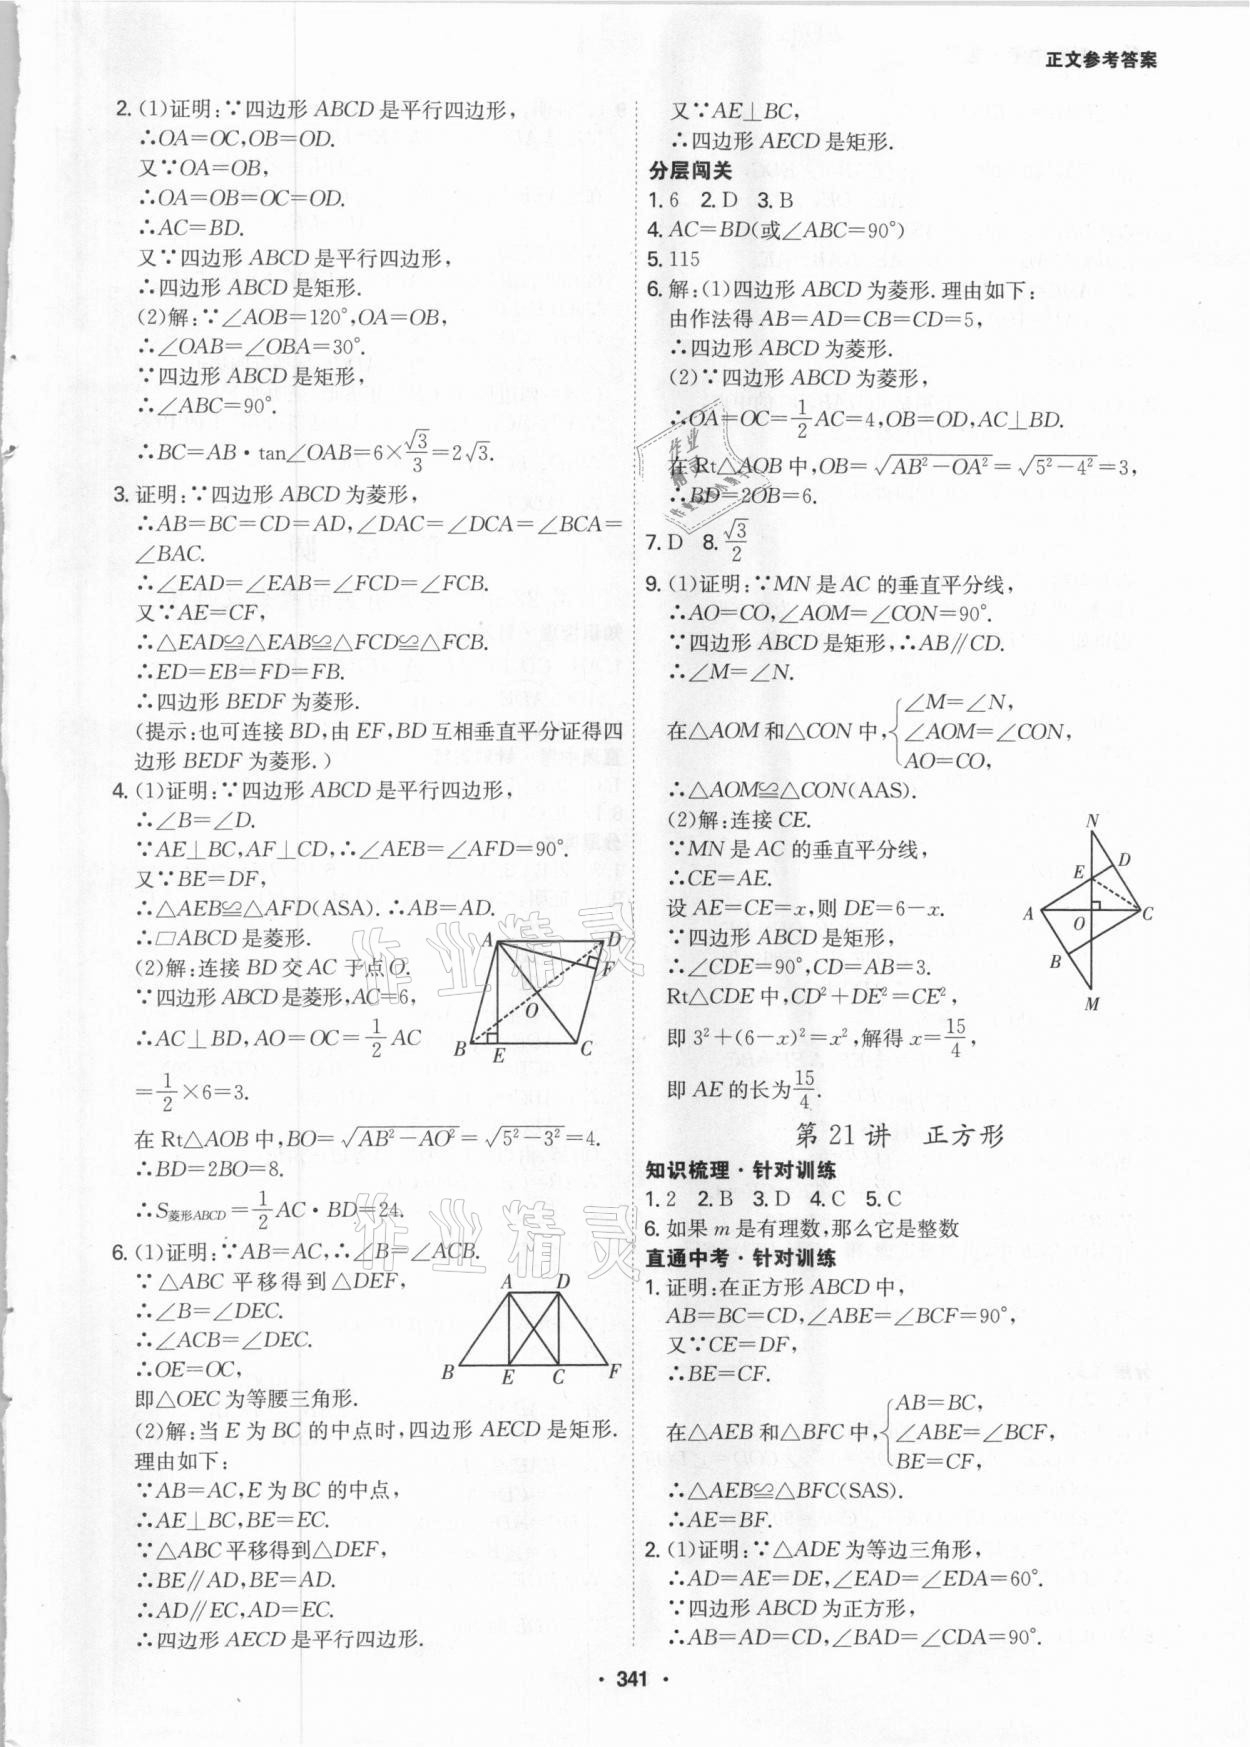 正文参考答案
2. (1)证明:∵四边形 ABCD 是平行四边形,
∴OA=OC,OB=OD.
又∵OA=OB,
∴OA=OB=OC=OD.
∴AC=BD.
又∵四边形 ABCD 是平行四边形,
∴四边形 ABCD 是矩形.
(2)解:∵∠AOB=120°,OA=OB,
∴∠OAB=∠OBA=30°.
∵四边形 ABCD 是矩形,
∴∠ABC=90°.
∴BC=AB·tan∠OAB=6×√3/3=2√3.
3. 证明:∵四边形 ABCD 为菱形,
∴AB=BC=CD=AD,∠DAC=∠DCA=∠BCA=
∠BAC.
∴∠EAD=∠EAB=∠FCD=∠FCB.
又∵AE=CF,
∴△EAD≌△EAB≌△FCD≌△FCB.
∴ED=EB=FD=FB.
∴四边形 BEDF 为菱形.
(提示:也可连接 BD,由 EF,BD 互相垂直平分证得四
边形 BEDF 为菱形.)
4. (1)证明:∵四边形 ABCD 是平行四边形,
∴∠B=∠D.
∵AE⊥BC,AF⊥CD,∴∠AEB=∠AFD=90°.
又∵BE=DF,
∴△AEB≌△AFD(ASA).∴AB=AD.
∴□ABCD 是菱形.
(2)解:连接 BD 交 AC 于点O.
∵四边形 ABCD 是菱形,AC=6,
∴AC⊥BD,AO=OC=1/2 AC
=1/2×6=3.
A D F O B E C
在 Rt△AOB 中,BO=√(AB²−AO²)=√(5²−3²)=4.
∴BD=2BO=8.
∴S菱形ABCD=1/2 AC·BD=24.
6. (1)证明:∵AB=AC,∴∠B=∠ACB.
∵△ABC 平移得到△DEF,
∴∠B=∠DEC.
∴∠ACB=∠DEC.
∴OE=OC,
即△OEC 为等腰三角形.
A D B E C F
(2)解:当 E 为 BC 的中点时,四边形 AECD 是矩形.
理由如下:
∵AB=AC,E 为 BC 的中点,
∴AE⊥BC,BE=EC.
∵△ABC 平移得到△DEF,
∴BE∥AD,BE=AD.
∴AD∥EC,AD=EC.
∴四边形 AECD 是平行四边形.
又∵AE⊥BC,
∴四边形 AECD 是矩形.
分层闯关
1. 6 2. D 3. B
4. AC=BD(或∠ABC=90°)
5. 115
6. 解:(1)四边形 ABCD 为菱形.理由如下:
由作法得 AB=AD=CB=CD=5,
∴四边形 ABCD 为菱形.
(2)∵四边形 ABCD 为菱形,
∴OA=OC=1/2 AC=4,OB=OD,AC⊥BD.
在 Rt△AOB 中,OB=√(AB²−OA²)=√(5²−4²)=3,
∴BD=2OB=6.
7. D 8. √3/2
9. (1)证明:∵MN 是 AC 的垂直平分线,
∴AO=CO,∠AOM=∠CON=90°.
∵四边形 ABCD 是矩形,∴AB∥CD.
∴∠M=∠N.
在△AOM 和△CON 中,{∠M=∠N,
∠AOM=∠CON,
AO=CO,
∴△AOM≌△CON(AAS).
(2)解:连接 CE.
∵MN 是 AC 的垂直平分线,
∴CE=AE.
设 AE=CE=x,则 DE=6−x.
∵四边形 ABCD 是矩形,
∴∠CDE=90°,CD=AB=3.
Rt△CDE 中,CD²+DE²=CE²,
即 3²+(6−x)²=x²,解得 x=15/4,
即 AE 的长为15/4.
N D E A O C B M
第 21 讲 正方形
知识梳理·针对训练
1. 2 2. B 3. D 4. C 5. C
6. 如果 m 是有理数,那么它是整数
直通中考·针对训练
1. 证明:在正方形 ABCD 中,
AB=BC=CD,∠ABE=∠BCF=90°,
又∵CE=DF,
∴BE=CF.
在△AEB 和△BFC 中,{AB=BC,
∠ABE=∠BCF,
BE=CF,
∴△AEB≌△BFC(SAS).
∴AE=BF.
2. (1)证明:∵△ADE 为等边三角形,
∴AD=AE=DE,∠EAD=∠EDA=60°.
∵四边形 ABCD 为正方形,
∴AB=AD=CD,∠BAD=∠CDA=90°.
· 341 ·
作业精灵
作业精灵
作业精灵